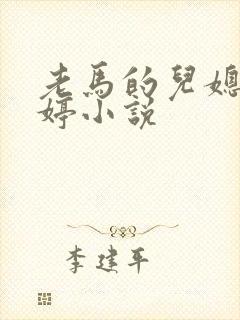 老馬的兒媳
婷小說
李建平